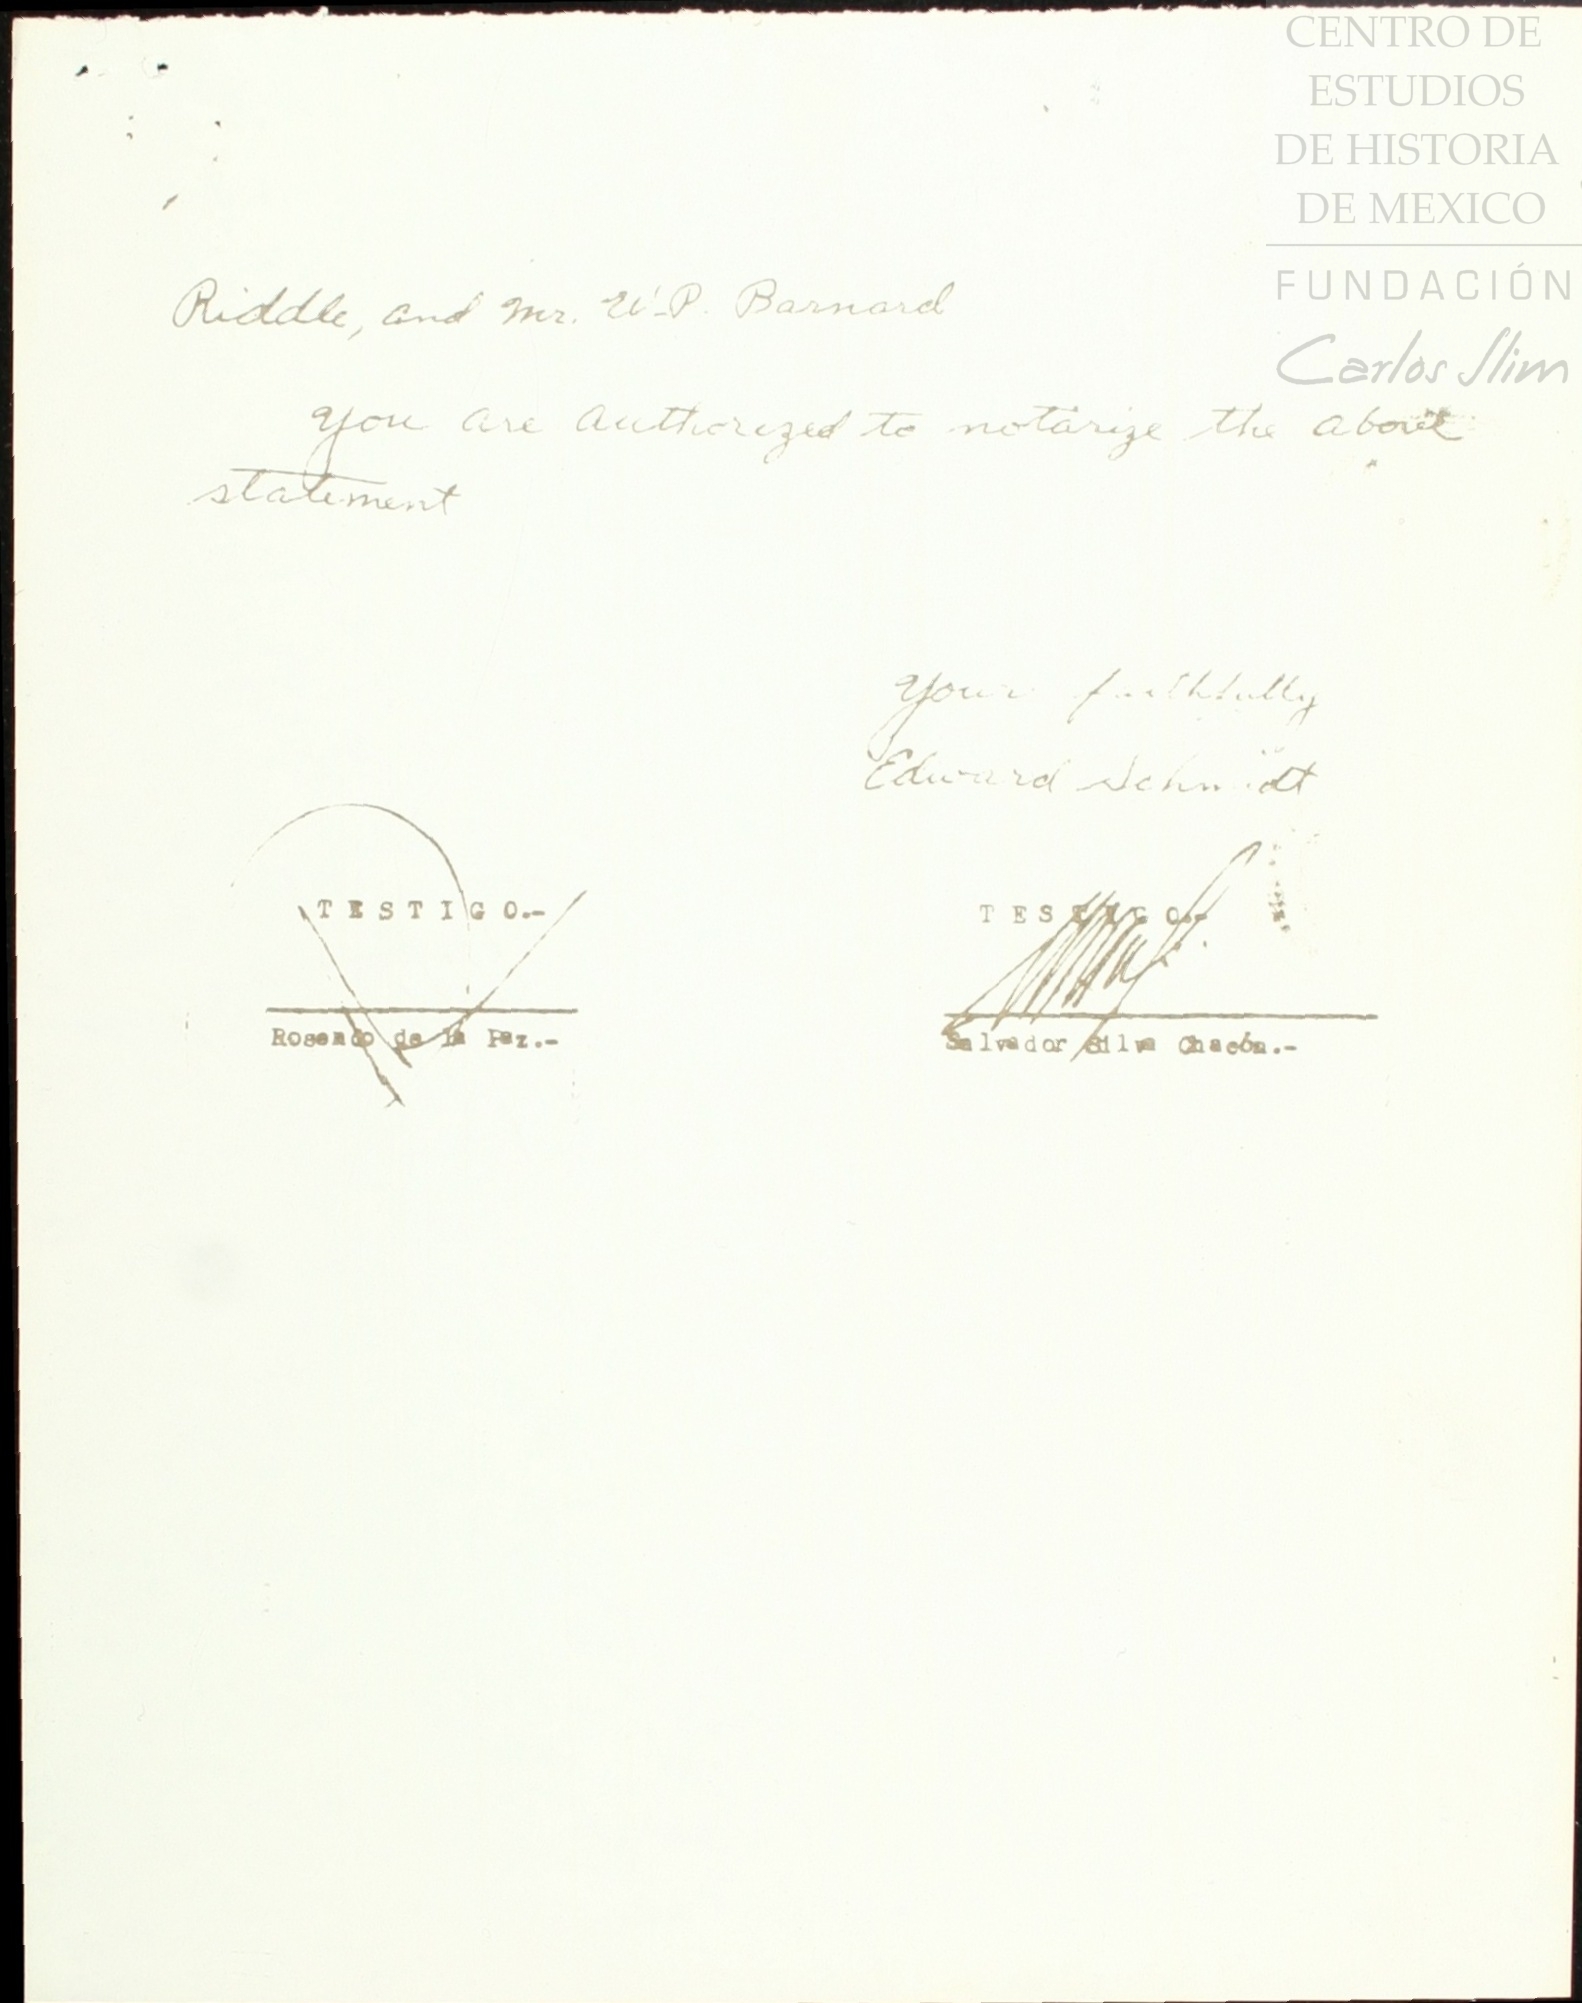 CENTRO DE
ESTUDIOS
DE HISTORIA
DE MEXICO
FUNDACIÓN
Carlos Slim
Riddle, and Mr. W.P. Barnard
you are authorized to notarize the above
statement
Your faithfully
Edward Schmidt
TESTIGO.-
Rosendo de la Paz.-
TESTIGO.-
Salvador Silva Chacón.-